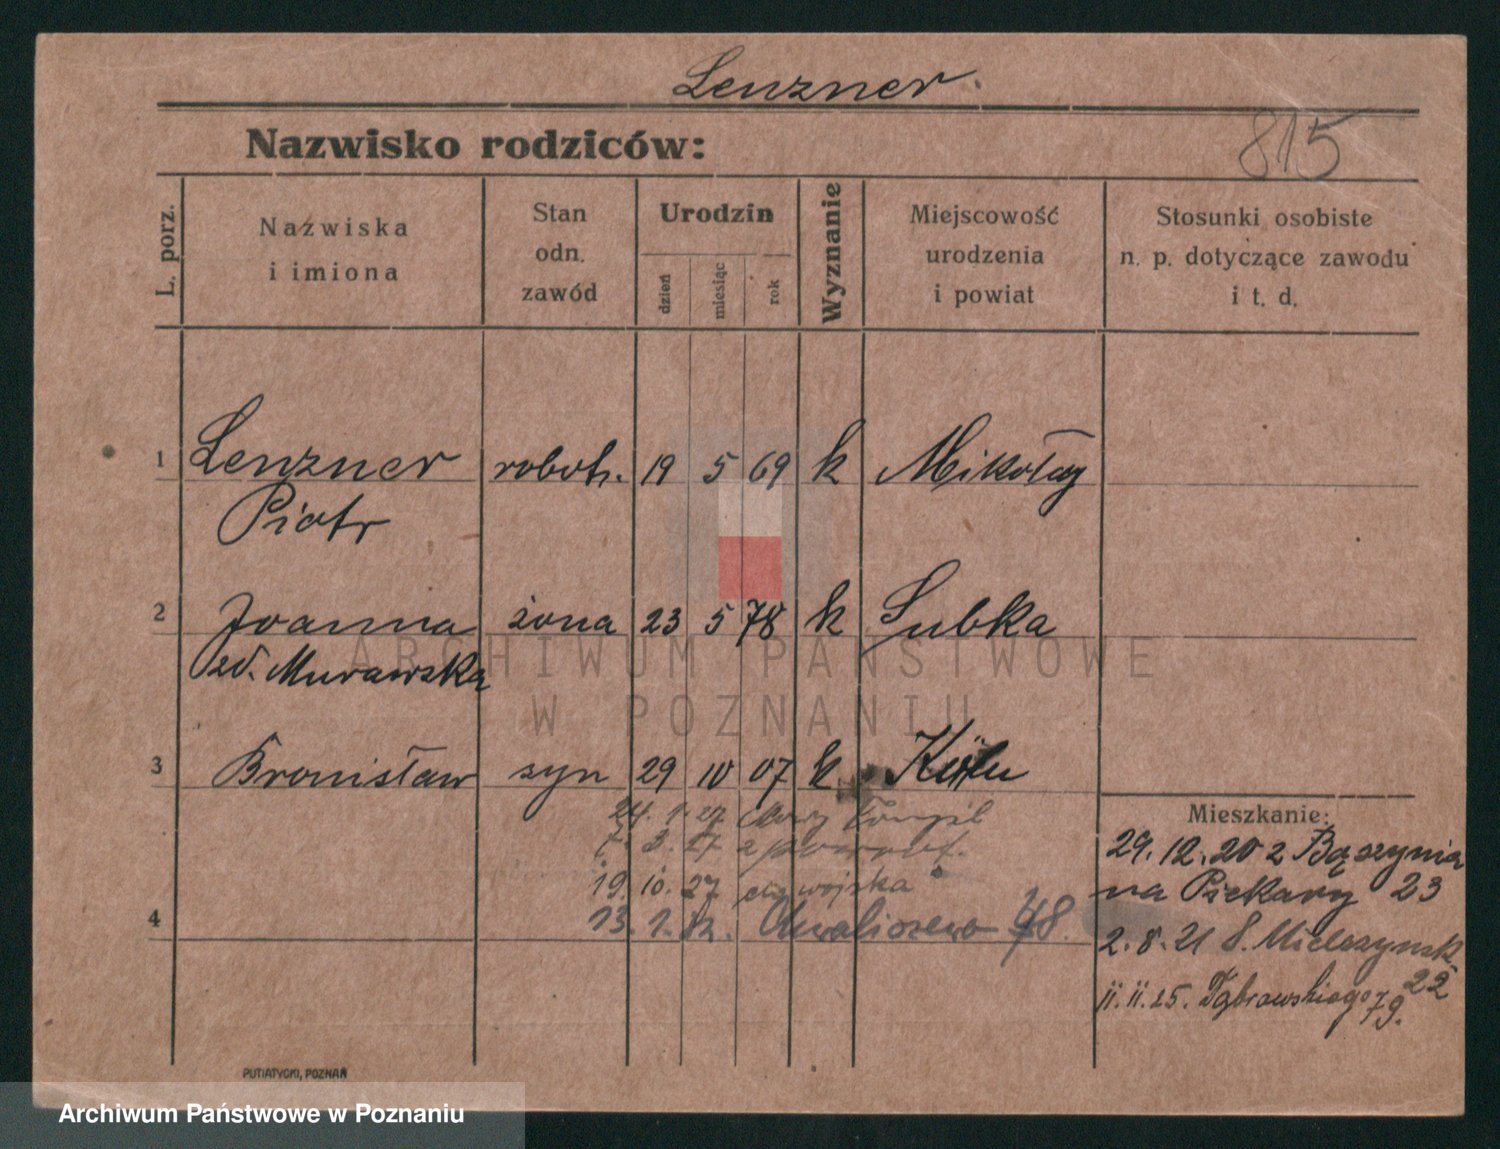 Lenzner
815
Nazwisko rodziców:
L. porz.
Nazwiska
i imiona
Stan
odn.
zawód
Urodzin
dzień
miesiąc
rok
Wyznanie
Miejscowość
urodzenia
i powiat
Stosunki osobiste
n. p. dotyczące zawodu
i t. d.
1 Lenzner robotn. 19 5 69 k Mikołaj
Piotr
2 Joanna żona 23 5 78 k Lubka
zd. Murawska
ARCHIWUM PAŃSTWOWE
W POZNANIU
3 Bronisław syn 29 10 07 k Köln
Mieszkanie:
29.12.20 z Bąszynia
na Piekary 23
2.8.21 S. Mielczynsk
22
11.11.25. Dąbrowskiego 79.
24.1.27
7.3.27 z powrot.
19.10.27 do wojska
4 13.1.32. Chwaliszewo 48.
PUTIATYCKI, POZNAŃ
Archiwum Państwowe w Poznaniu